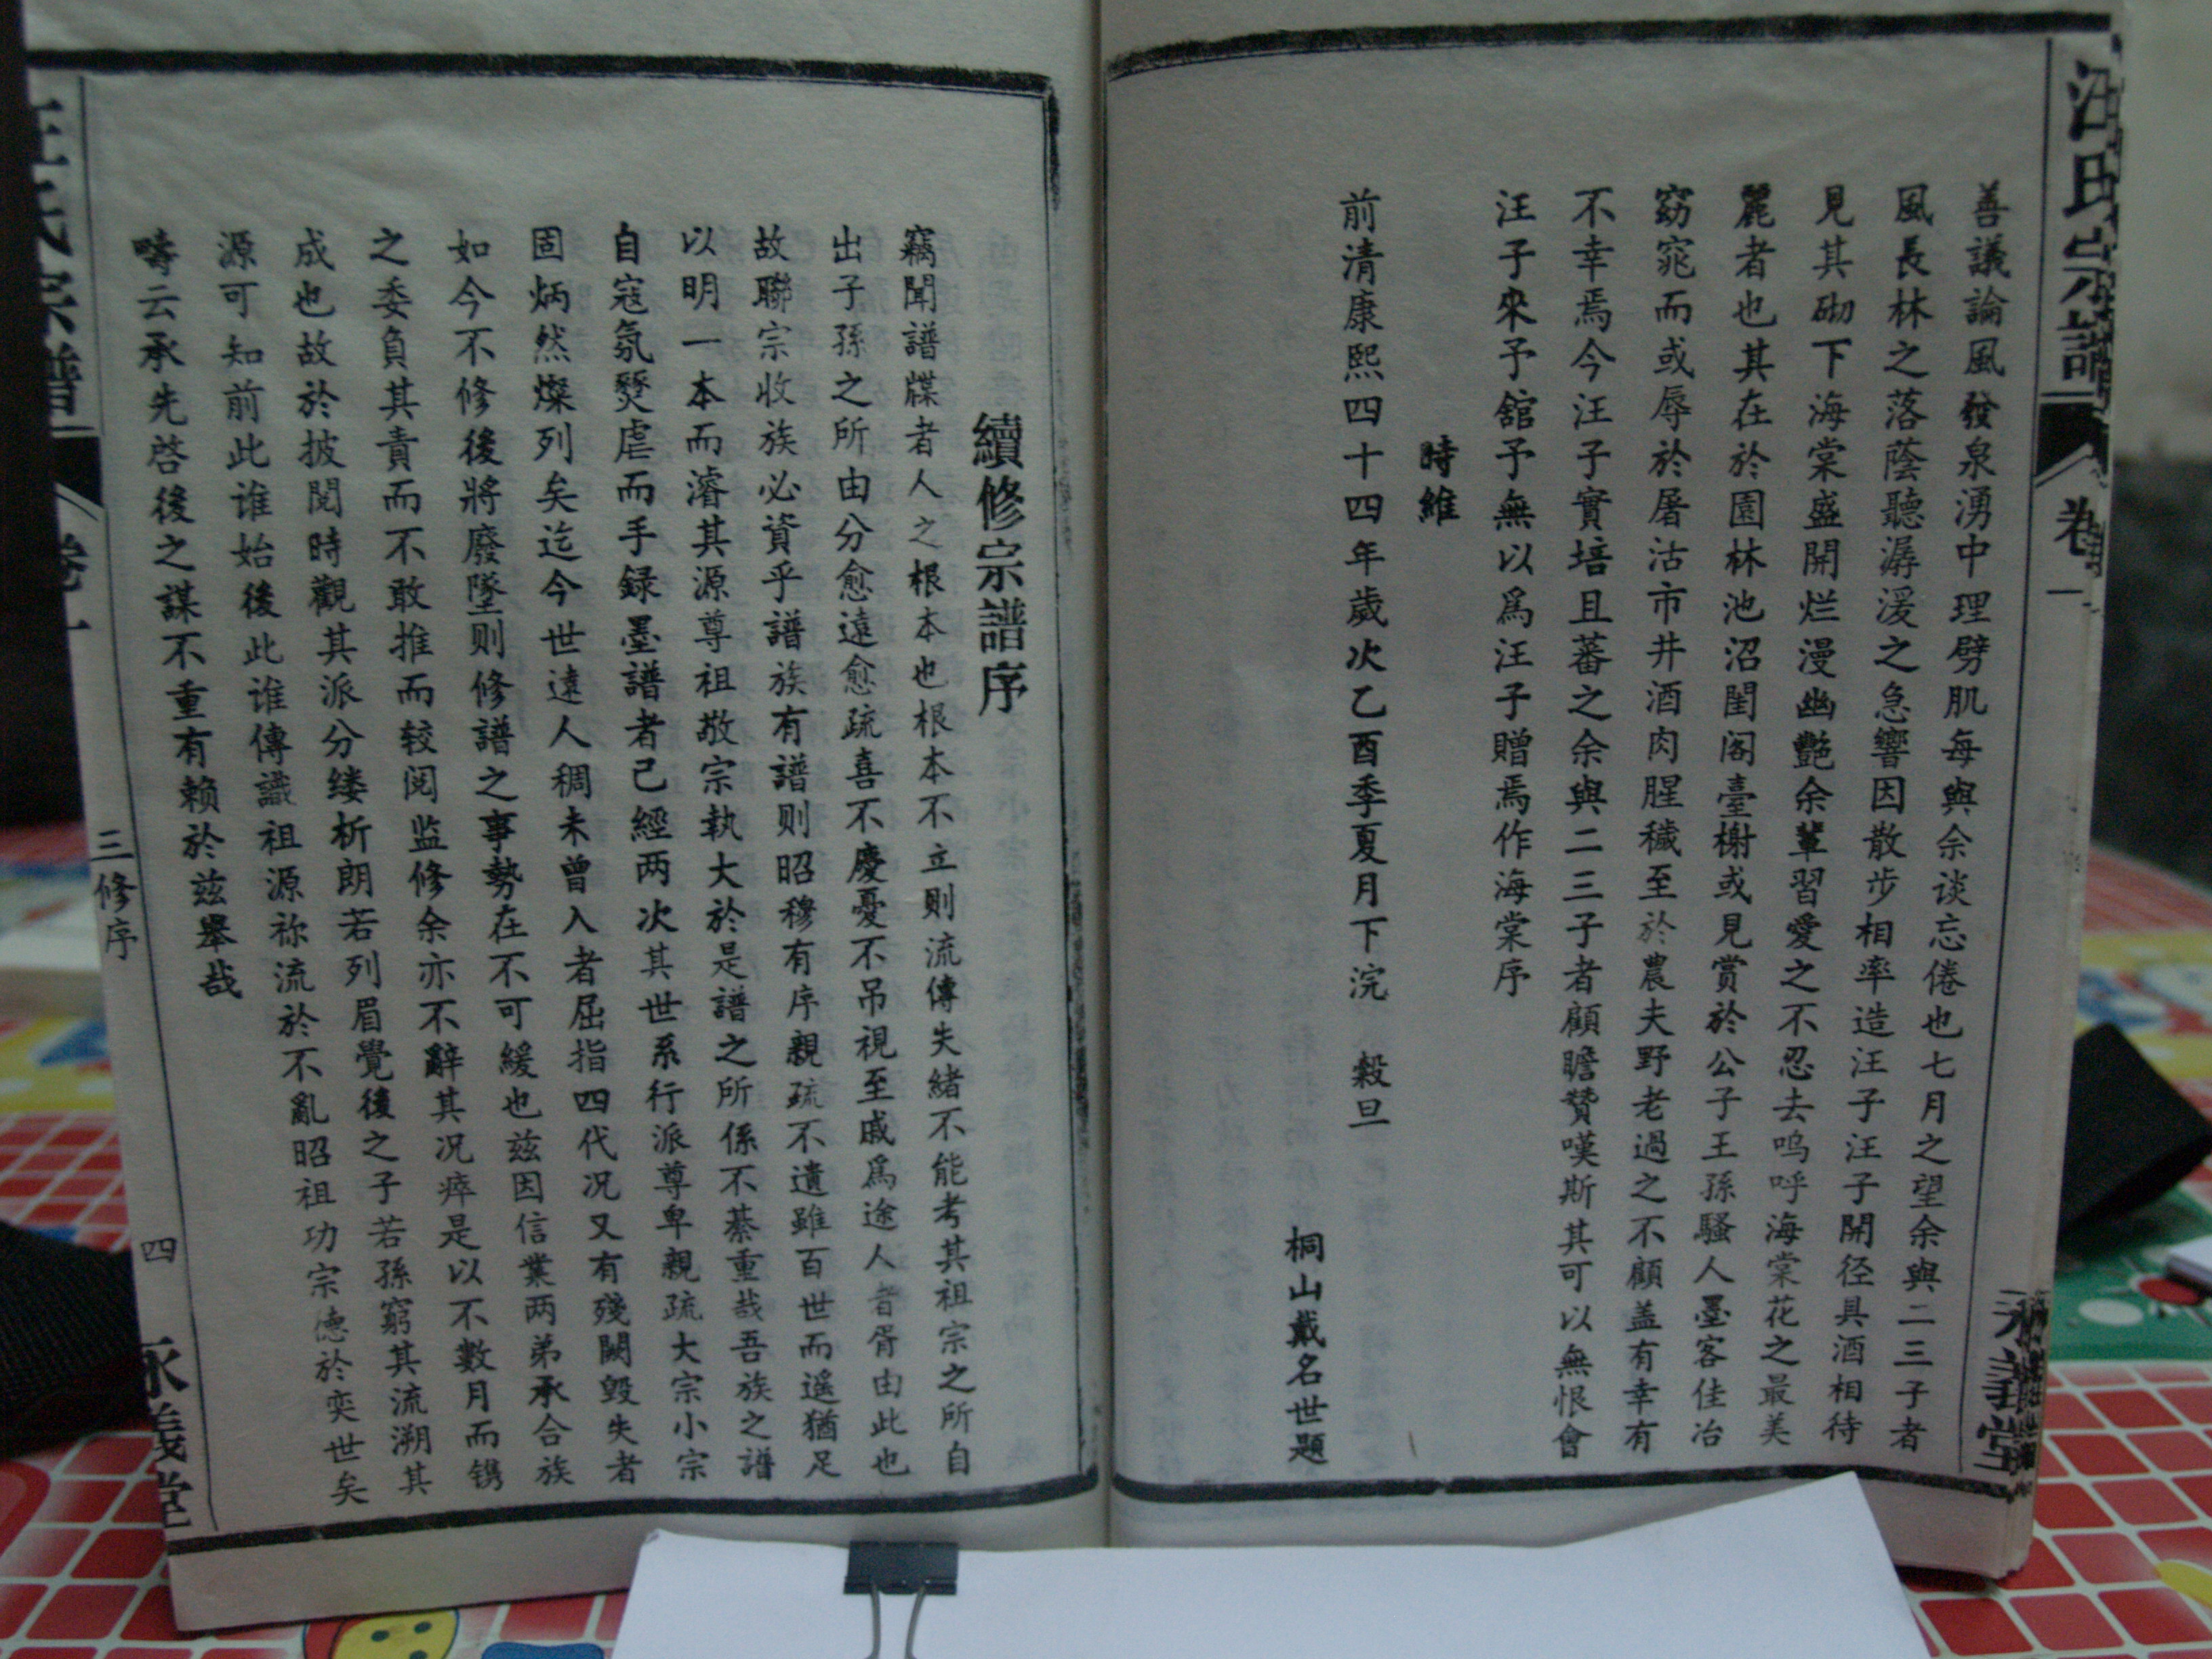 汪氏宗譜
卷一
永義堂
善議論風發泉湧中理劈肌每與余谈忘倦也七月之望余與二三子者
風長林之落蔭聽潺湲之急響因散步相率造汪子汪子開径具酒相待
見其砌下海棠盛開烂漫幽艷余輩習愛之不忍去呜呼海棠花之最美
麗者也其在於園林池沼閨阁臺榭或見賞於公子王孫騷人墨客佳冶
窈窕而或辱於屠沽市井酒肉腥穢至於農夫野老過之不顧盖有幸有
不幸焉今汪子實培且蕃之余與二三子者顧瞻贊嘆斯其可以無恨會
汪子來予舘予無以爲汪子贈焉作海棠序
時維
前清康熙四十四年歲次乙酉季夏月下浣 穀旦
桐山戴名世題
續修宗譜序
竊聞譜牒者人之根本也根本不立則流傳失緒不能考其祖宗之所自
出子孫之所由分愈遠愈疏喜不慶憂不吊視至戚爲途人者胥由此也
故聯宗收族必資乎譜族有譜則昭穆有序親疏不遺雖百世而遥猶足
以明一本而濬其源尊祖敬宗執大於是譜之所係不綦重哉吾族之譜
自寇氛燹虐而手録墨譜者已經两次其世系行派尊卑親疏大宗小宗
固炳然燦列矣迄今世遠人稠未曾入者屈指四代况又有殘闕毀失者
如今不修後將廢墜则修譜之事勢在不可緩也兹因信業两弟承合族
之委負其責而不敢推而较阅监修余亦不辭其况瘁是以不數月而镌
成也故於披閱時觀其派分缕析朗若列眉覺後之子若孫窮其流溯其
源可知前此谁始後此谁傳識祖源祢流於不亂昭祖功宗德於奕世矣
疇云承先啓後之謀不重有赖於兹舉哉
汪氏宗譜
卷一
三修序
四
永義堂